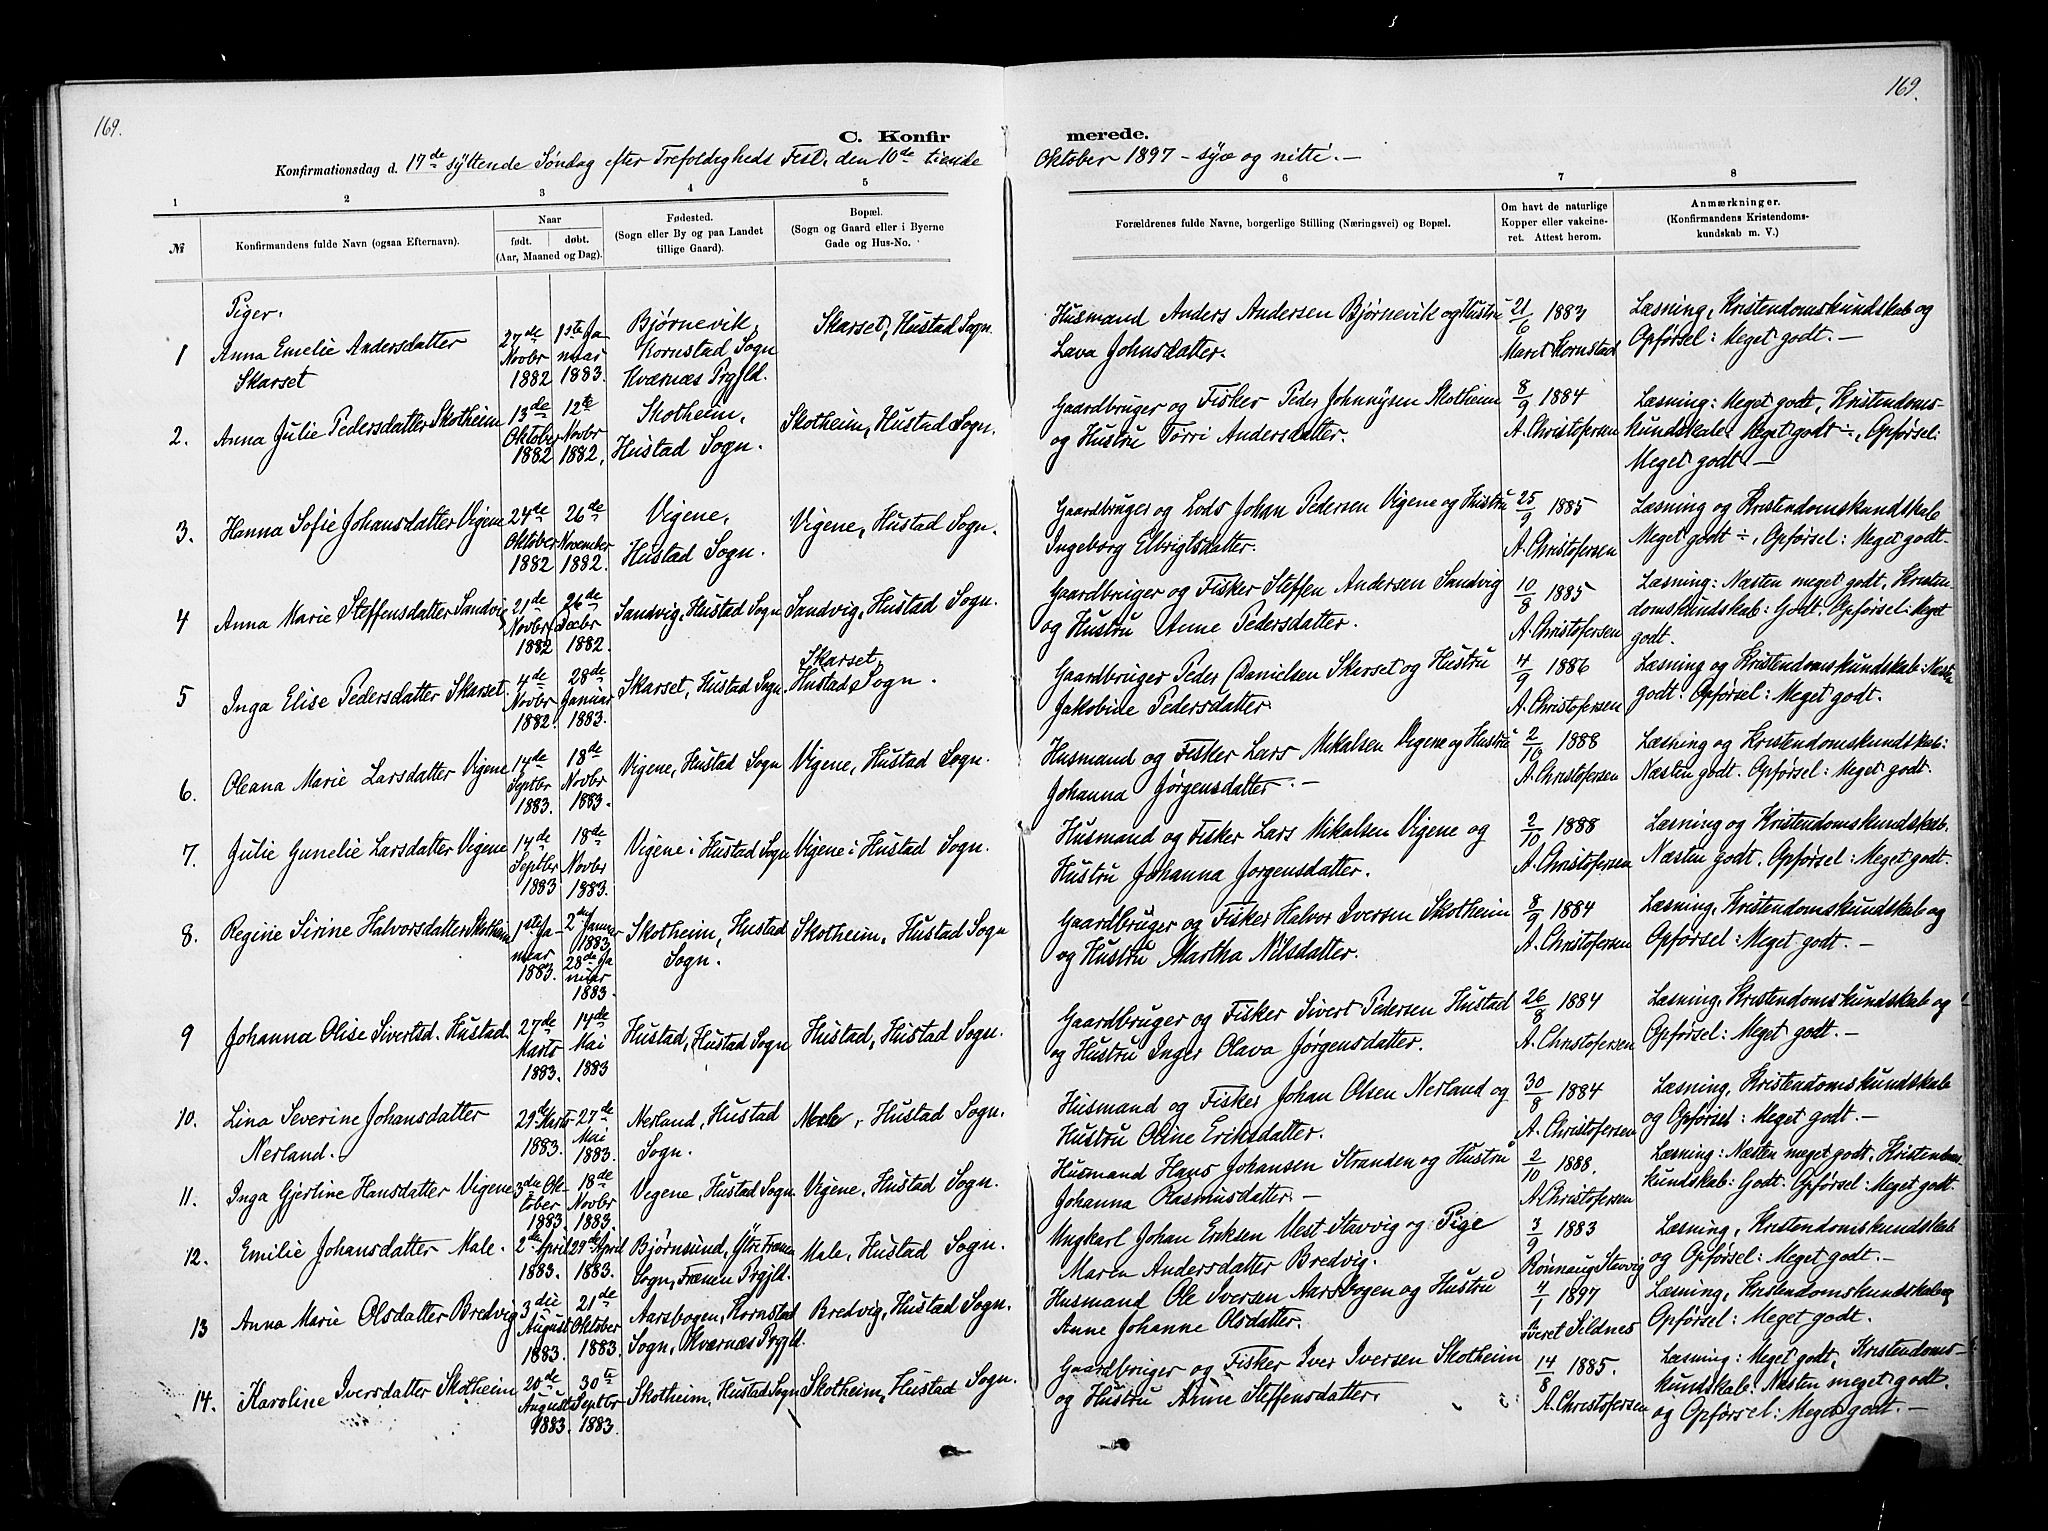 169.
169.
C. Konfirmerede.
Konfirmationsdag d. 17de syttende Søndag efter Trefoldigheds Fest, den 10de tiende Oktober 1897 - syv og nitti. -
1 2 3 4 5 6 7 8
№
Konfirmandens fulde Navn (ogsaa Efternavn).
Naar
født. døbt.
(Aar, Maaned og Dag).
Fødested.
(Sogn eller By og paa Landet
tillige Gaard).
Bopæl.
(Sogn og Gaard eller i Byerne
Gade og Hus-No.
Forældrenes fulde Navne, borgerlige Stilling (Næringsvei) og Bopæl.
Om havt de naturlige
Kopper eller vakcine-
ret. Attest herom.
Anmærkninger.
(Konfirmandens Kristendoms-
kundskab m. V.)
Piger.
1 Anna Emelie Andersdatter Skarset
27de Novbr 1882
1ste Januar 1883.
Bjørnevik, Kornstad Sogn Kværnæs Prgjld.
Skarset, Hustad Sogn.
Husmand Anders Andersen Bjørnevik og Hustru
Lava Johnsdatter.
21/6 1883
Maret Kornstad
Læsning, Kristendomskundskab og
Opførsel: Meget godt. -
2. Anna Julie Pedersdatter Skotheim
13de Oktober 1882
12te Novbr 1882.
Skotheim, Hustad Sogn.
Skotheim, Hustad Sogn.
Gaardbruger og Fisker Peder Johnnysen Skotheim
og Hustru Torri Andersdatter.
8/9 1884
A. Christofersen
Læsning: Meget godt, Kristendoms-
kundskab: Meget godt ÷, Opførsel:
Meget godt -
3. Hanna Sofie Johansdatter Vigene
24de Oktober 1882
26de November 1882.
Vigene, Hustad Sogn.
Vigene, Hustad Sogn.
Gaardbruger og Lods Johan Pedersen Vigene og Hustru
Ingeborg Elbrigtsdatter.
25/9 1885
A. Christofersen
Læsning og Kristendomskundskab
Meget godt ÷, Opførsel: Meget godt.
4 Anna Marie Steffensdatter Sandvig
21de Novbr 1882
26de Decbr 1882.
Sandvig, Hustad Sogn
Sandvig, Hustad Sogn.
Gaardbruger og Fisker Steffen Andersen Sandvig
og Hustru Anne Pedersdatter.
10/8 1885
A. Christofersen
Læsning: Næsten meget godt, Kristen-
domskundskab: Godt. Opførsel: Meget
godt.
5 Inga Elise Pedersdatter Skarset.
4de Novbr 1882.
28de Januar 1883.
Skarset, Hustad Sogn.
Skarset, Hustad Sogn.
Gaardbruger Peder Danielsen Skarset og Hustru
Jakobine Pedersdatter.
4/9 1886
A. Christofersen
Læsning og Kristendomskundskab: Næsten
godt. Opførsel: Meget godt.
6. Oleana Marie Larsdatter Vigene
14de Septbr 1883.
18de Novbr 1883.
Vigene, Hustad Sogn
Vigene, Hustad Sogn.
Husmand og Fisker Lars Mikalsen Vigene og Hustru
Johanna Jørgensdatter. -
2/10 1888
A. Christofersen
Læsning og Kristendomskundskab:
Næsten godt. Opførsel: Meget godt.
7. Julie Gunelie Larsdatter Vigene
14de Septbr 1883
18de Novbr 1883.
Vigene i Hustad Sogn
Vigene i Hustad Sogn.
Husmand og Fisker Lars Mikalsen Vigene og
Hustru Johanna Jørgensdatter.
2/10 1888
A. Christofersen
Læsning og Kristendomskundskab.
Næsten godt. Opførsel: Meget godt.
8. Regine Sirine Halvorsdatter Skotheim
1ste Januar 1883.
2den Januar 1883. 28de Januar 1883.
Skotheim, Hustad Sogn.
Skotheim, Hustad Sogn
Gaardbruger og Fisker Halvor Iversen Skotheim
og Hustru Martha Nilsdatter.
8/9 1884
A. Christofersen
Læsning, Kristendomskundskab og
Opførsel: Meget godt. -
9 Johanna Olise Sivertsd. Hustad.
27de Marts 1883.
14de Mai 1883
Hustad, Hustad Sogn
Hustad, Hustad Sogn.
Gaardbruger og Fisker Sivert Pedersen Hustad
og Hustru Inger Olava Jørgensdatter.
26/8 1884
A. Christofersen
Læsning, Kristendomskundskab og
Opførsel: Meget godt. -
10. Lina Severine Johansdatter Nerland.
29de Marts 1883.
27de Mai 1883.
Nerland, Hustad Sogn.
Male, Hustad Sogn.
Husmand og Fisker Johan Olsen Nerland og
Hustru Oline Eriksdatter.
30/8 1884
A. Christofersen
Læsning, Kristendomskundskab
og Opførsel: Meget godt. -
11. Inga Gjertine Hansdatter Vigene
3die Oktober 1883.
18de Novbr 1883.
Vigene, Hustad Sogn
Vigene, Hustad Sogn.
Husmand Hans Johansen Stranden og Hustru
Johanna Rasmusdatter. -
2/10 1888.
A. Christofersen
Læsning: Næsten meget godt. Kristendoms-
kundskab: Godt. Opførsel: Meget godt.
12. Emilie Johansdatter Male.
2den April 1883.
29de April 1883.
Bjørnsund, Ytre Frænen Sogn, Frænen Prgjld.
Male, Hustad Sogn.
Ungkarl Johan Eriksen Vest Stavvig og Pige
Maren Andersdatter Bredvig.
3/9 1883
Rønnaug Stavvig
Læsning, Kristendomskundskab
og Opførsel: Meget godt. -
13 Anna Marie Olsdatter Bredvig
3die August 1883.
21de Oktober 1883.
Aarsbogen, Kornstad Sogn, Kværnæs Prgjld.
Bredvig, Hustad Sogn.
Husmand Ole Iversen Aarsbogen og Hustru
Anne Johanne Olsdatter.
4/1 1897
Sildnes
Læsning, Kristendomskundskab og
Opførsel: Meget godt.
14. Karoline Iversdatter Skotheim
20de August 1883.
30te Septbr 1883.
Skotheim, Hustad Sogn
Skotheim, Hustad Sogn.
Gaardbruger og Fisker Iver Iversen Skotheim
og Hustru Anne Steffensdatter.
14/8 1885.
A. Christofersen
Læsning: Meget godt, Kristendoms-
kundskab: Næsten meget godt.
og Opførsel: Meget godt. -